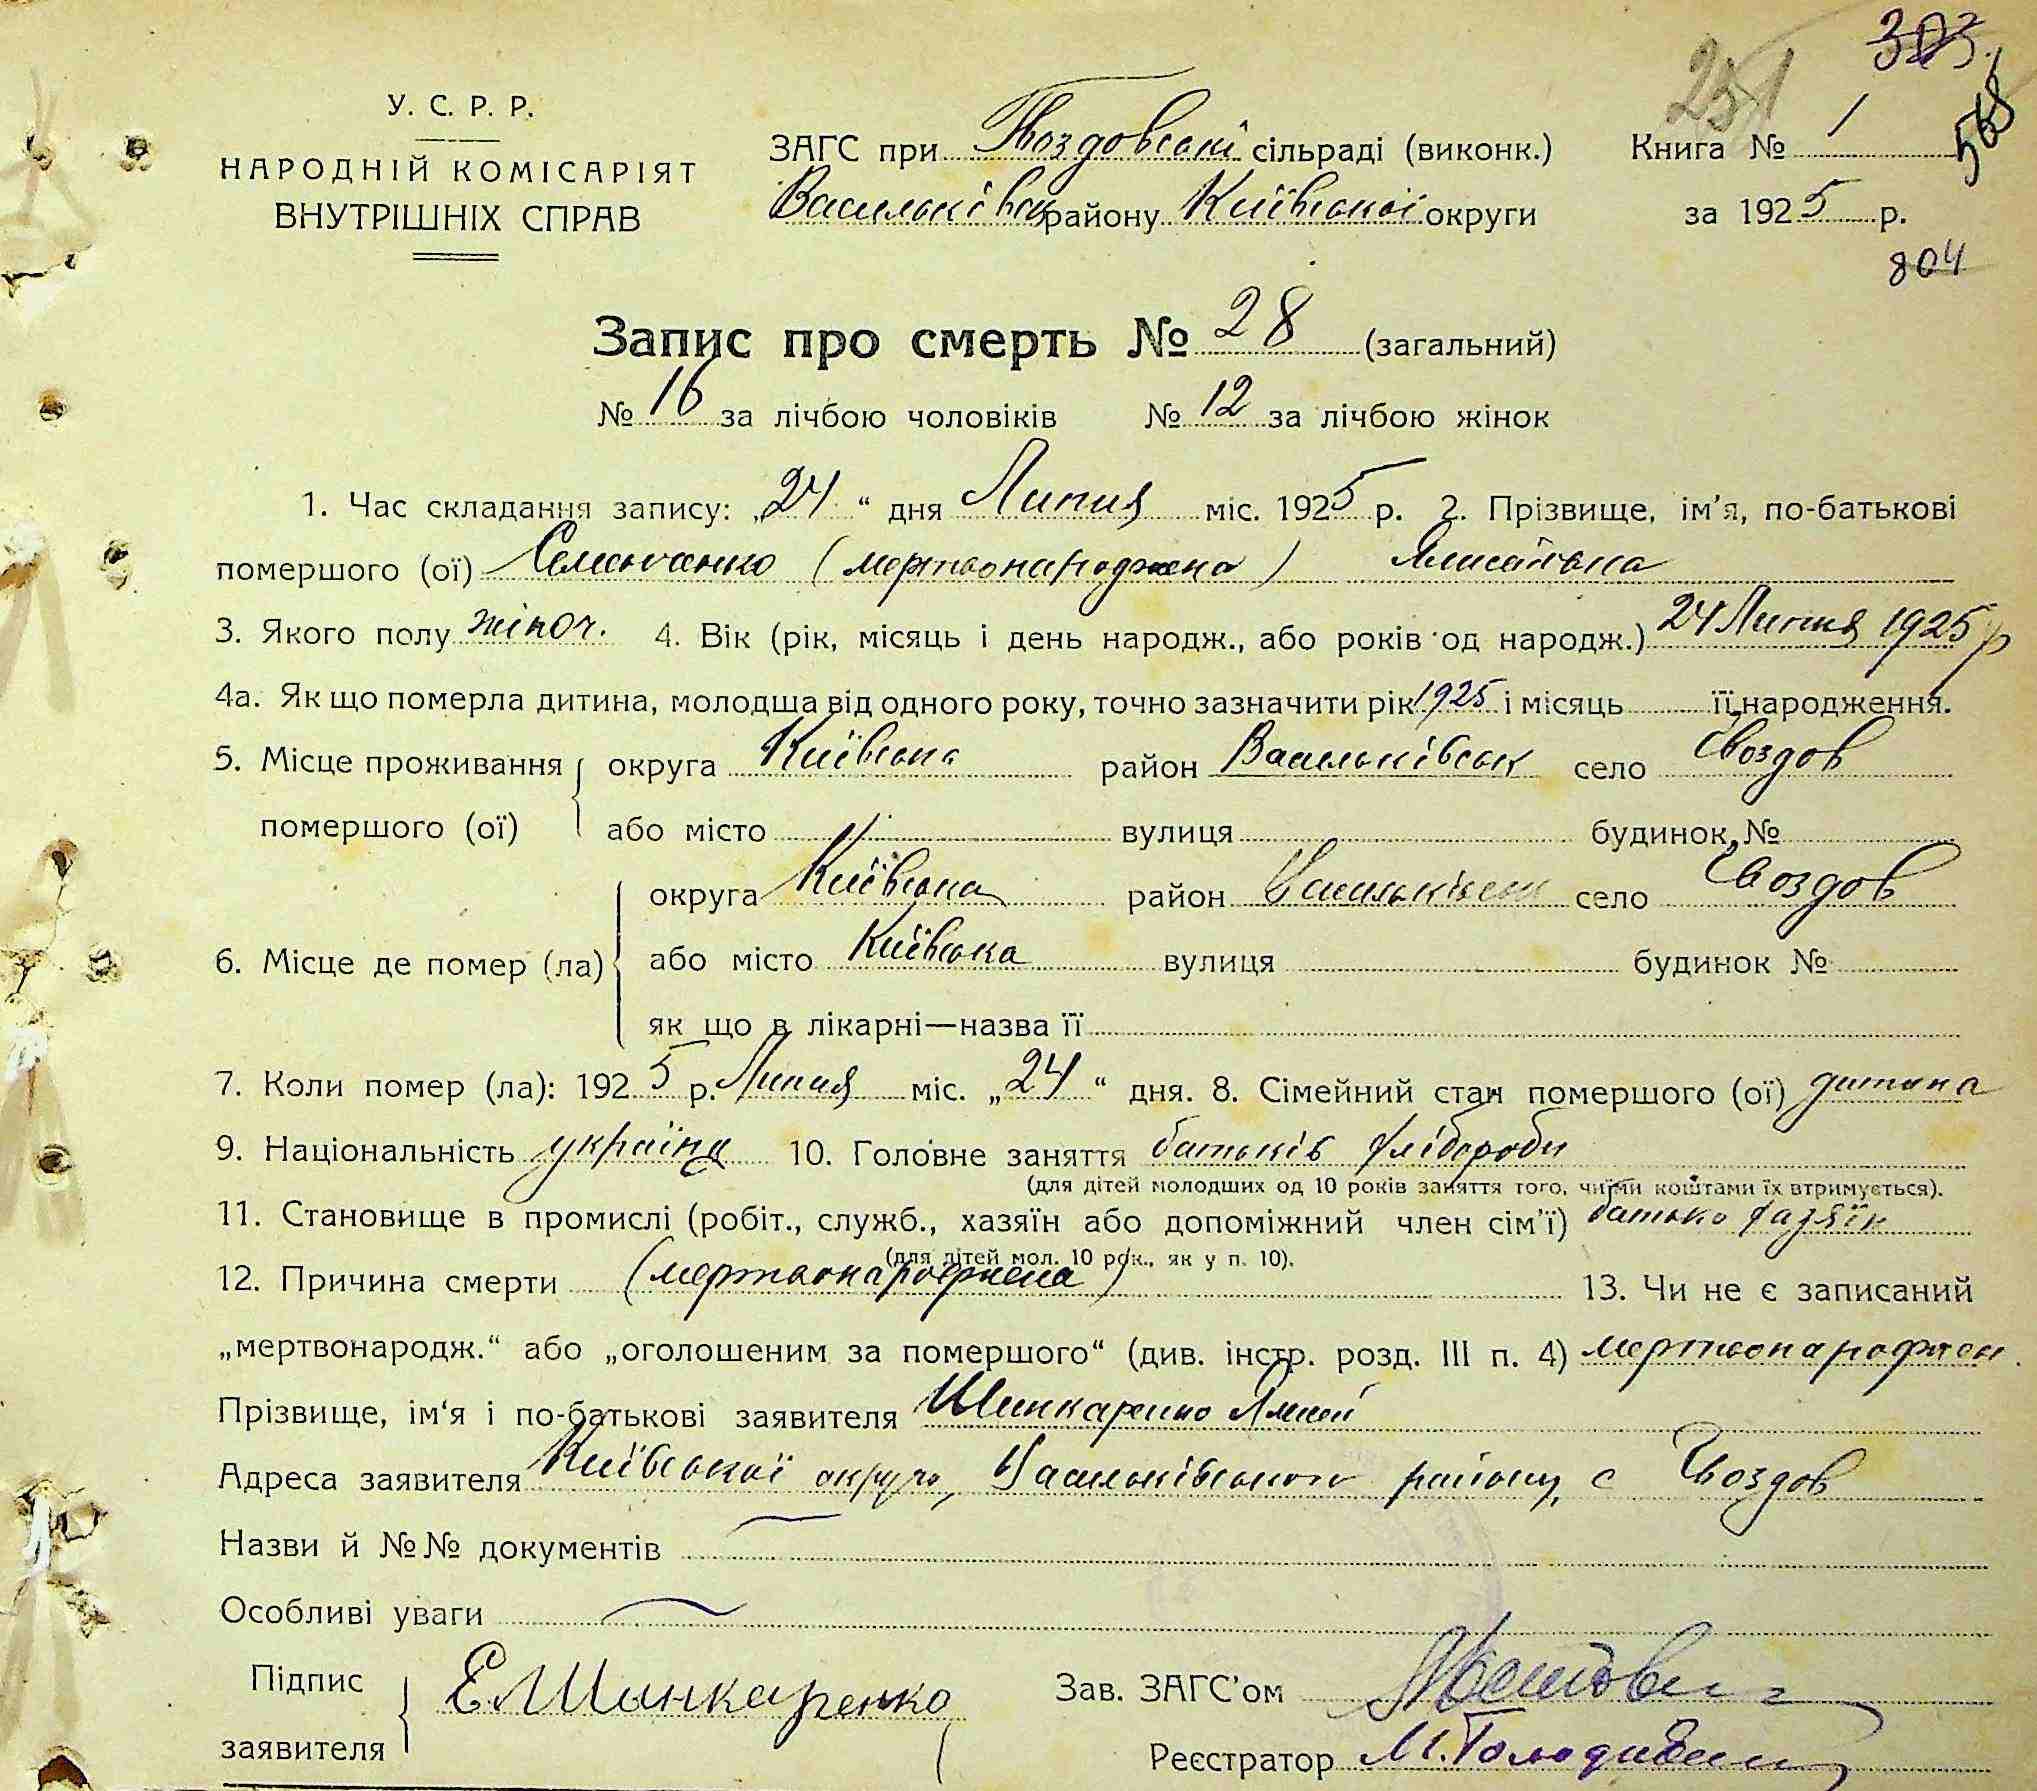 303.
251
568
У. С. Р. Р.
НАРОДНІЙ КОМІСАРІЯТ
ВНУТРІШНІХ СПРАВ
ЗАГС при Гвоздовській сільраді (виконк.)
Васильківськ району Київської округи
Книга № 1
за 1925 р.
804
Запис про смерть № 28 (загальний)
№ 16 за лічбою чоловіків № 12 за лічбою жінок
1. Час складання запису: „24“ дня Липня міс. 1925 р. 2. Прізвище, ім'я, по-батькові
помершого (ої) (мертвонароджена)
3. Якого полу жіноч. 4. Вік (рік, місяць і день народж., або років од народж.) 24 Липня 1925 р
4а. Як що померла дитина, молодша від одного року, точно зазначити рік 1925 і місяць її народження.
5. Місце проживання округа Київська район Васильківськ село Гвоздов
помершого (ої) або місто вулиця будинок №
округа Київська район Васильківськ село Гвоздов
6. Місце де помер (ла) або місто Київська вулиця будинок №
як що в лікарні—назва її
7. Коли помер (ла): 1925 р. Липня міс. „24“ дня. 8. Сімейний стан помершого (ої) дитина
9. Національність україн 10. Головне заняття батьків хлібороби
(для дітей молодших од 10 років заняття того, чиїми коштами їх втримується).
11. Становище в промислі (робіт., служб., хазяїн або допоміжний член сім'ї) батько хазяїн
(для дітей мол. 10 рок., як у п. 10).
12. Причина смерти (мертвонароджена) 13. Чи не є записаний
„мертвонародж.“ або „оголошеним за помершого“ (див. інстр. розд. III п. 4) мертвонароджен.
Прізвище, ім'я і по-батькові заявителя Шинкаренко
Адреса заявителя Київської округи, Васильківського району, с Гвоздов
Назви й №№ документів
Особливі уваги
Підпис
заявителя Е Шинкаренко
Зав. ЗАГС'ом
Реєстратор М.